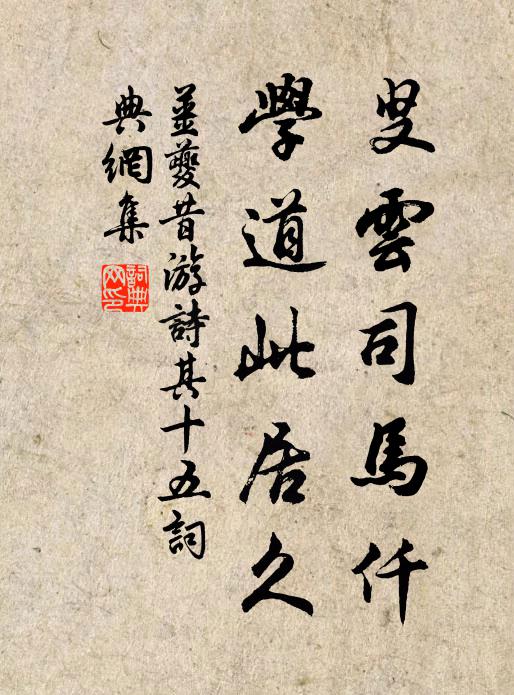 叟雲司馬仟
學道此居久
姜夔昔游詩其十五詞
典網集
詞典網印